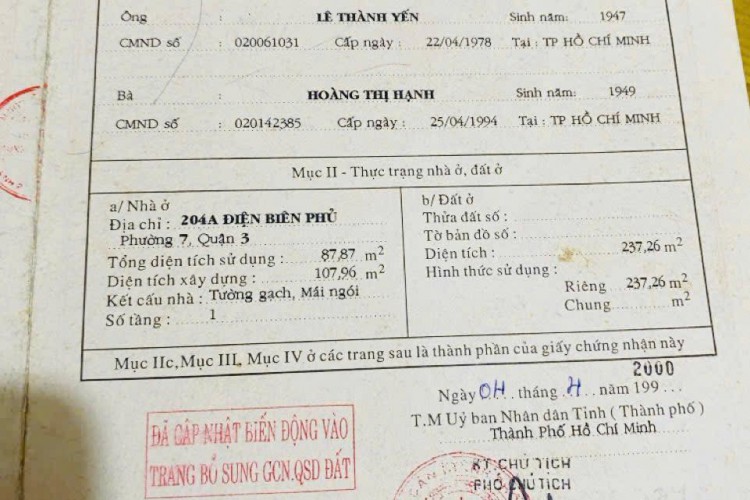 Ông : LÊ THÀNH YẾN Sinh năm: 1947
CMND số : 020061031 Cấp ngày : 22/04/1978 Tại : TP HỒ CHÍ MINH
Bà : HOÀNG THỊ HẠNH Sinh năm: 1949
CMND số : 020142385 Cấp ngày : 25/04/1994 Tại : TP HỒ CHÍ MINH
Mục II - Thực trạng nhà ở, đất ở
a/ Nhà ở
Địa chỉ : 204A ĐIỆN BIÊN PHỦ
Phường 7, Quận 3
Tổng diện tích sử dụng : 87,87 m2
Diện tích xây dựng : 107,96 m2
Kết cấu nhà : Tường gạch, Mái ngói
Số tầng : 1
b/ Đất ở
Thửa đất số :
Tờ bản đồ số :
Diện tích : 237,26 m2
Hình thức sử dụng :
Riêng 237,26 m2
Chung m2
Mục IIc, Mục III, Mục IV ở các trang sau là thành phần của giấy chứng nhận này
2000
Ngày 04 tháng 4 năm 199...
T.M Uỷ ban Nhân dân Tỉnh ( Thành phố )
Thành Phố Hồ Chí Minh
KT CHỦ TỊCH
PHÓ CHỦ TỊCH
ĐÃ CẬP NHẬT BIẾN ĐỘNG VÀO
TRANG BỔ SUNG GCN.QSD ĐẤT